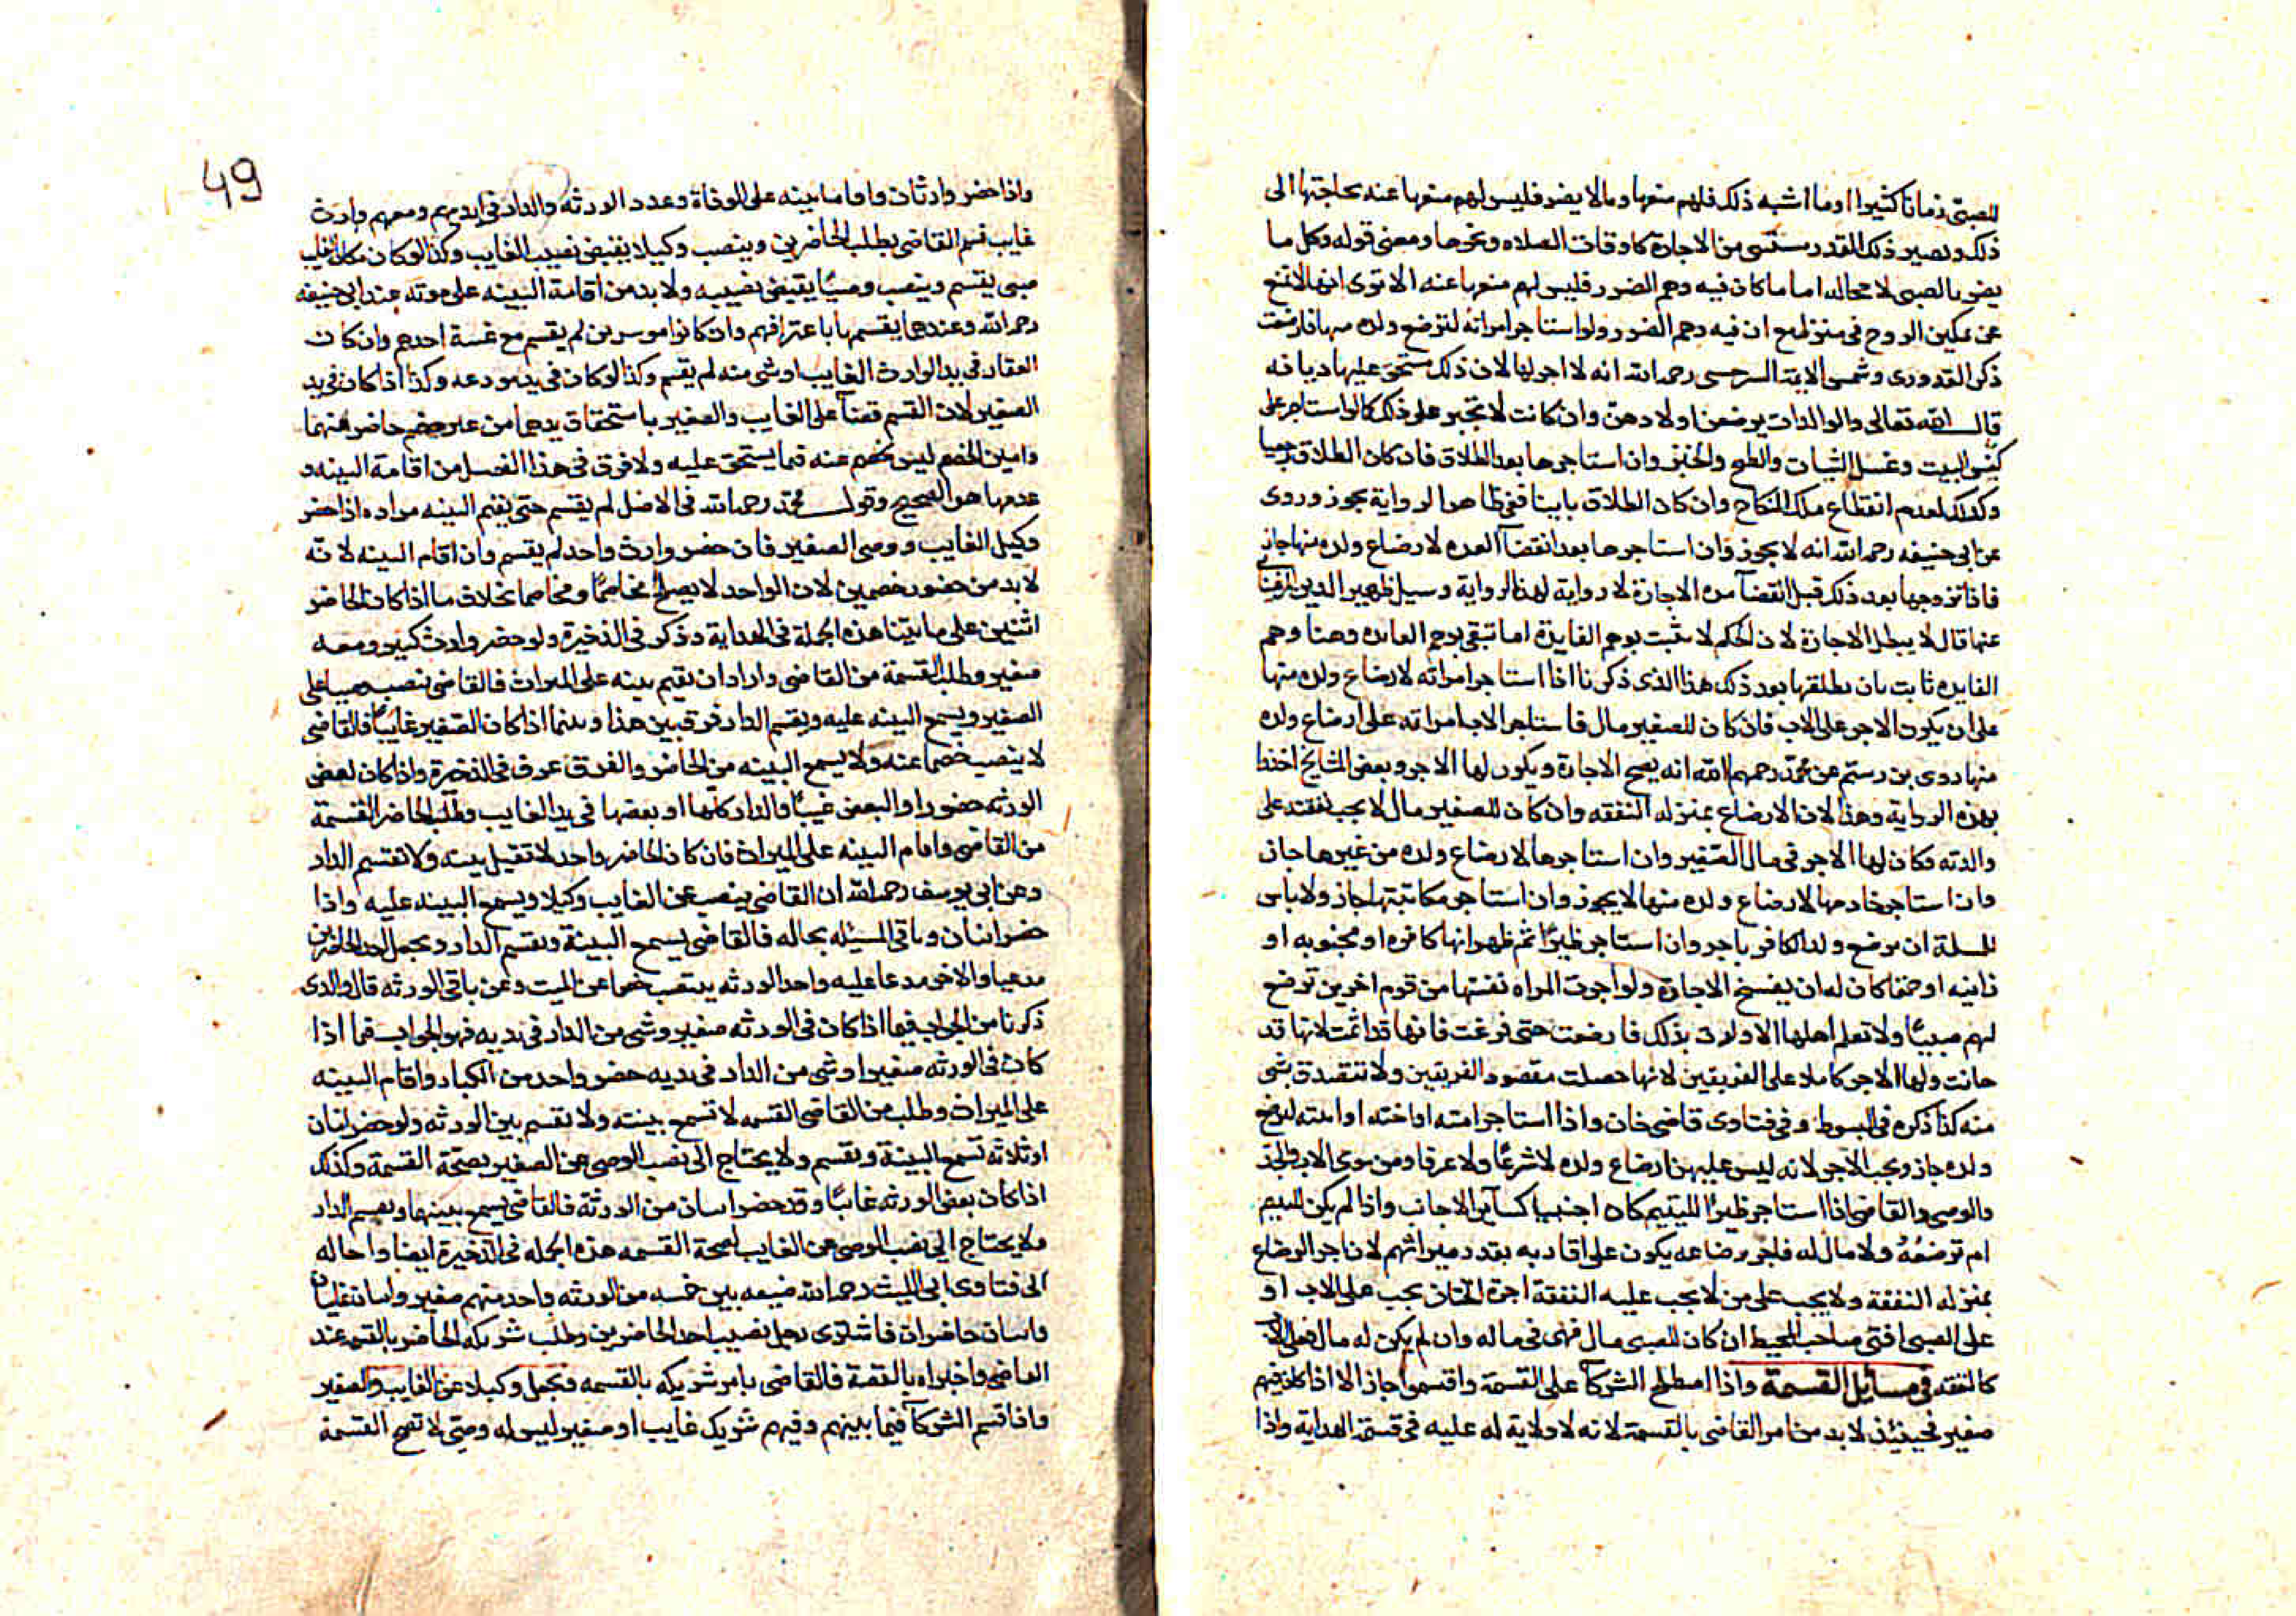 للصبي زمانا كثيرا او ما اشبه ذلك فلهم منعها وما لا يضر فليس لهم منعها عنه بحاجتها الى
ذلك ويصير ذلك القدر مستثنى من الاجارة كاوقات الصلاه ونحوها ومعنى قوله وكل ما
يضر بالصبى لا محاله اما ما كان فيه وهم الضرر فليس لهم منعها عنه الا ترى انها لا تمنع
عن تمكين الزوج في منزله مع ان فيه وهم الضرر ولو استاجر امراته لترضع ولده منها فارضعت
ذكر القدورى وشمس الايمة السرخسى رحمه الله انه لا اجر لها لان ذلك مستحق عليها ديانة
قال الله تعالى والوالدات يرضعن اولادهن وان كانت لا تجبر على ذلك كالو استاجر على
كنس البيت وغسل الثياب والطبخ والخبز وان استاجرها بعد الطلاق فان كان الطلاق رجعيا
وكذلك لعدم انقطاع ملك النكاح وان كان الطلاق باينا ففي ظاهر الرواية يجوز وروى
عن ابي حنيفه رحمه الله انه لا يجوز وان استاجرها بعد انقضآ العده لارضاع ولده منها جاز
فاذا تزوجها بعد ذلك قبل انقضآ مده الاجارة لا رواية لهذا الرواية وسيل ظهير الدين المرغينا
عنها قال لا يبطل الاجارة لان الحكم لا يثبت بوهم الفايدة اما تبقى بوهم الفايده وهنا وهم
الفايده ثابت بان يطلقها بعد ذلك هذا الذى ذكرنا اذا استاجر امراته لارضاع ولده منها
على ان يكون الاجر على الاب فان كان للصغير مال فاستاجر الاب امراته على ارضاع ولده
منها روى بن رستم عن محمد رحمهم الله انه يصح الاجارة ويكون لها الاجر وبعض المشايخ اخذوا
بهذه الرواية وهذا لان الارضاع بمنزله النفقه وان كان للصغير مال لا يجب نفقته على
والدته فكان لها الاجر في مال الصغير وان استاجرها لارضاع ولده من غيرها جاز
وان استاجر خادمها لارضاع ولده منها لا يجوز وان استاجر مكاتبتها جاز ولا باس
للمسلمة ان ترضع ولد الكافر باجر وان استاجر ظيرا ثم ظهر انها كافره او مجنونه او
زانيه او حمقا كان له ان يفسخ الاجارة ولو اجرت المراه نفسها من قوم اخرين ترضع
لهم صبيًا ولا تعلم اهلها الاولون بذلك فارضعت حتى فرغت فانها قد اثمت لانها قد
خانت ولها الاجر كاملا على الفريقين لانها حصلت مقصود الفريقين ولا تتصدق بشى
منه كذا ذكره في المبسوط وفي فتاوى قاضى خان واذا استاجر امته او اخته او ابنته لترضع
ولده جاز ويجب الاجر لانه ليس عليهن ارضاع ولده لا شرعًا ولا عرفا ومن سوى الاب والجد
والوصى والقاضى اذا استاجر ظيرًا لليتيم كان اجنبيا كسآير الاجانب واذا لم يكن لليتيم
ام ترضعهُ ولا مال له فاجر رضاعه يكون على اقاربه بقدر ميراثهم لان اجر الرضاع
بمنزله النفقة ولا يجب على من لا يجب عليه النفقة اجرة الختان يجب على الاب او
على الصبى افتى صاحب المحيط ان كان للصبى مال فهى في ماله وان لم يكن له مال فعلى الاب
كالنفقه في مسايل القسمة واذا اصطلح الشركآ على القسمة واقتسموا جاز الا اذا كان فيهم
صغير فحينئذ لا بد من امر القاضى بالقسمة لانه لا ولاية له عليه في قسمة الهداية واذا
49
واذا حضر وارثان واقاما بينه على الوفاة وعدد الورثه والدار في ايديهم ومعهم وارث
غايب قسم القاضى بطلب الحاضرين وينصب وكيلا يقبض نصيب الغايب وكذا لو كان مكان الغايب
صبى يقسم وينصب وصيًا يقبض نصيبه ولا بد من اقامة البينه على موته عند ابى حنيفه
رحمه الله وعندهما يقسمها باعترافهم وان كانوا موسرين لم يقسم مع غيبة احدهم وان كان
العقار في يد الوارث الغايب او شى منه لم يقسم وكذا لو كان في يد مودعه وكذا اذا كان في يد
الصغير لان القسم قضآ على الغايب والصغير باستحقاق يدهما من غير خصم حاضر عنهما
وامين الخصم ليس بخصم عنه فيما يستحق عليه ولا فرق في هذا الفصل من اقامة البينه و
عدمها هو الصحيح وقول محمد رحمه الله في الاصل لم يقسم حتى يقيم البينه مراده اذا حضر
وكيل الغايب ووصى الصغير فان حضر وارث واحد لم يقسم وان اقام البينه لانه
لا بد من حضور خصمين لان الواحد لا يصلح مخاصمًا ومخاصما بخلاف ما اذا كان الحاضر
اثنين على ما بيّنا هذه الجملة في الهداية وذكر في الذخيرة ولو حضر وارث كبير ومعه
صغير وطلب القسمة من القاضى واراد ان يقيم بينه على الميراث فالقاضى ينصب وصيا على
الصغير ويسمع البينه عليه ويقسم الدار فرق بين هذا وبينما اذا كان الصغير غايبًا فالقاضى
لا ينصب خصما عنه ولا يسمع البينه من الحاضر والفرق عرف في الذخيرة واذا كان بعض
الورثه حضورا والبعض غيبًا والدار كلها او بعضها في يد الغايب وطلب الحاضر القسمة
من القاضى واقام البينه على الميراث فان كان الحاضر واحد لا تقبل بينته ولا تقسم الدار
وعن ابي يوسف رحمه الله ان القاضى ينصب عن الغايب وكيلا ويسمع البينه عليه واذا
حضر اثنان وباقى المسئله بحاله فالقاضى يسمع البينة ويقسم الدار ويجعل احد الحاضرين
مدعيا والاخر مدعا عليه واحد الورثه ينتصب خصما عن الميت وعن باقى الورثه قال والذى
ذكرنا من الجواب فيما اذا كان في الورثه صغير وشى من الدار في يديه فهو الجواب فيما اذا
كان في الورثه صغير او شى من الدار في يديه حضر واحد من الكبار واقام البينه
على الميراث وطلب من القاضى القسمه لا تسمع بينته ولا تقسم بين الورثه ولو حضر اثنان
او ثلاثه تسمع البينة وتقسم ولا يحتاج الى نصب الوصى عن الصغير بصحة القسمة وكذلك
اذا كان بعض الورثه غايبًا وقد حضر اثنان من الورثة فالقاضى يسمع بينهما ويقسم الدار
ولا يحتاج الى نصب الوصى عن الغايب لصحة القسمه هذه الجمله في الذخيرة ايضا واحاله
الى فتاوى ابى الليث رحمه الله ضيعه بين خمسه من الورثه واحد منهم صغير واثنان غايبان
واثنان حاضران فاشترى رجل نصيب احد الحاضرين وطلب شريكه الحاضر بالقسمه عند
القاضى واخبراه بالقصة فالقاضى يامر شريكه بالقسمه ويجعل وكيلا عن الغايب والصغير
واذا قسم الشركآ فيما بينهم وفيهم شريك غايب او صغير ليس له وصى لا تصح القسمة